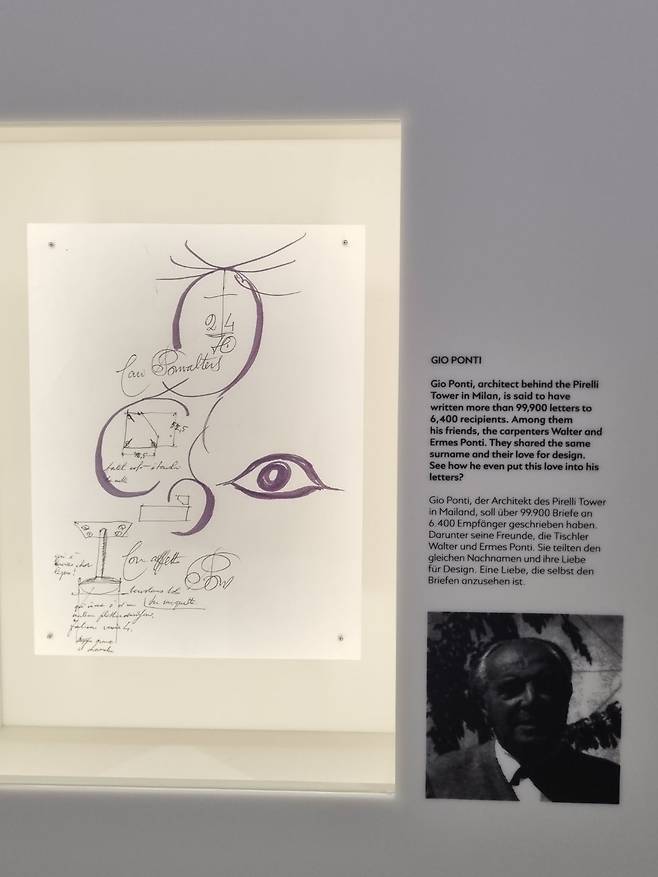 24
Caro Ponwalters
Con affetto
GIO PONTI
Gio Ponti, architect behind the Pirelli
Tower in Milan, is said to have
written more than 99,900 letters to
6,400 recipients. Among them
his friends, the carpenters Walter and
Ermes Ponti. They shared the same
surname and their love for design.
See how he even put this love into his
letters?
Gio Ponti, der Architekt des Pirelli Tower
in Mailand, soll über 99.900 Briefe an
6.400 Empfänger geschrieben haben.
Darunter seine Freunde, die Tischler
Walter und Ermes Ponti. Sie teilten den
gleichen Nachnamen und ihre Liebe
für Design. Eine Liebe, die selbst den
Briefen anzusehen ist.